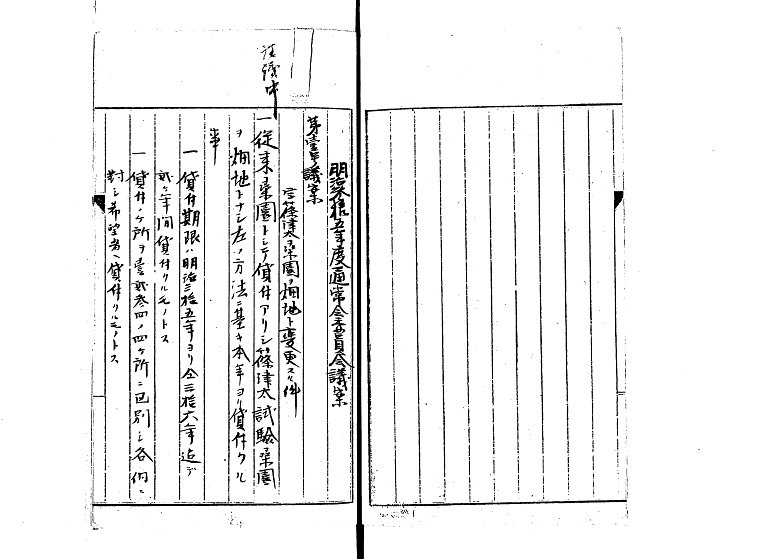 明治参拾五年度通常会委員会議案
第壹号議案
字篠津太桑園ヲ畑地ト変更スル件
一従来桑園トシテ貸付アリシ篠津太試験桑園
ヲ畑地トナシ左ノ方法ニ基キ本年ヨリ貸付クル
事
一貸付期限ハ明治三拾五年ヨリ仝三拾六年迄デ
貮ケ年間貸付クルモノトス
一貸付ノケ所ヲ壹貮参四ノ四ケ所ニ区別シ各個ニ
対シ希望者ヘ貸付クルモノトス